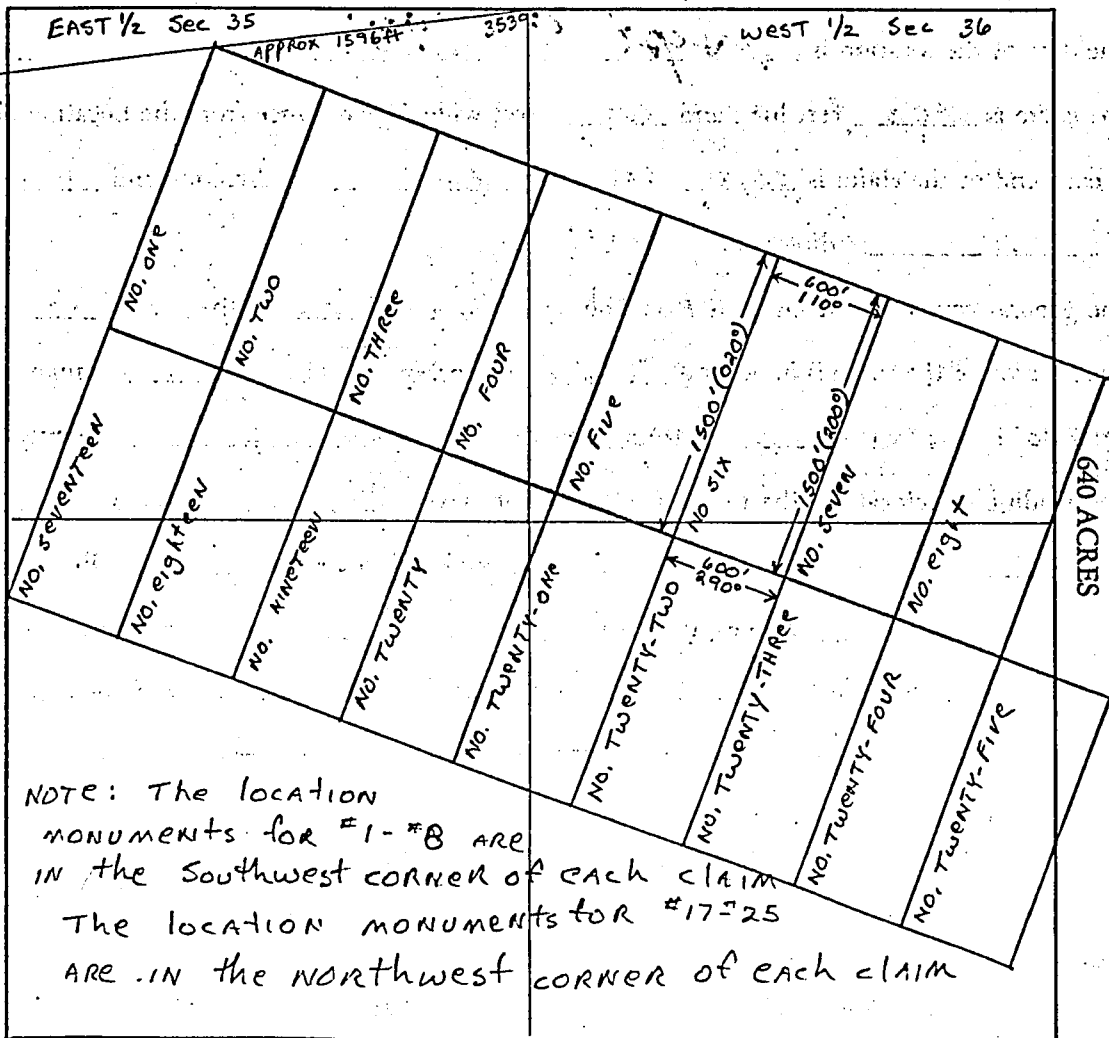 EAST 1/2 Sec 35
WEST 1/2 Sec 36
APPROX 1596ft
3539
NO. ONE
NO. TWO
NO. THREE
NO. FOUR
NO. FIVE
NO SIX
NO. SEVEN
NO. eight
1500' (020°)
600'
110°
1500' (200°)
600'
290°
640 ACRES
NO. SEVENTEEN
NO. eighteen
NO. NINETEEN
NO. TWENTY
NO. TWENTY-ONE
NO. TWENTY-TWO
NO. TWENTY-THREE
NO. TWENTY-FOUR
NO. TWENTY-FIVE
NOTE: The location
monuments for #1-#8 ARE
IN the Southwest corner of each claim
The location monuments for #17-#25
ARE IN the NORthwest corner of each claim